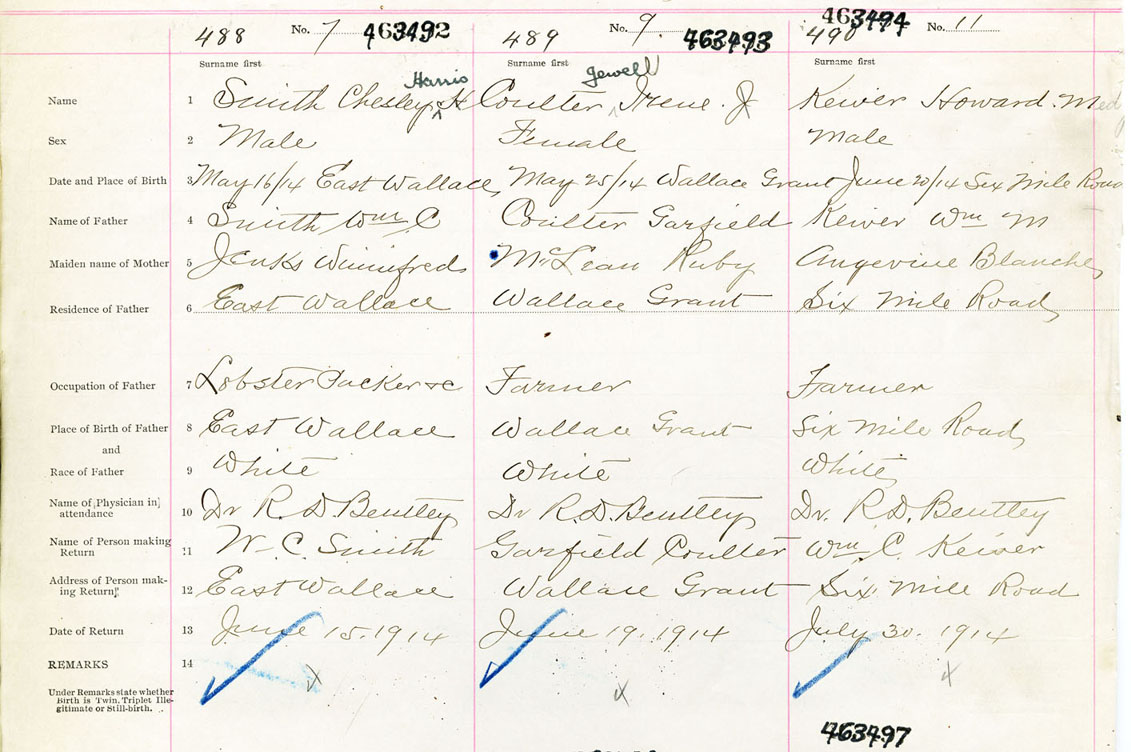 488 No. 7 463492 489 No. 9. 463493 490 463494 No. 11
Surname first Surname first Surname first
Harris Jewell
Name 1 Smith Chesley H Coulter Irene. J Keiver Howard.
Sex 2 Male Female Male
Date and Place of Birth 3 May 16/14 East Wallace, May 25/14 Wallace Grant June 20/14 Six Mile Road
Name of Father 4 Smith Wm C Coulter Garfield Keiver Wm M
Maiden name of Mother 5 Jenks Winnifred McLean Ruby Angevine Blanche
Residence of Father 6 East Wallace Wallace Grant Six Mile Road
Occupation of Father 7 Lobster Packer &c Farmer Farmer
Place of Birth of Father 8 East Wallace Wallace Grant Six Mile Road
and
Race of Father 9 White White White
Name of Physician in
attendance 10 Dr R. D. Benttey Dr R.D. Benttey Dr. R.D. Benttey
Name of Person making
Return 11 W. C. Smith Garfield Coulter Wm C. Keiver
Address of Person mak-
ing Return 12 East Wallace Wallace Grant Six Mile Road
Date of Return 13 June 15. 1914 June 19. 1914 July 30. 1914
REMARKS 14
Under Remarks state whether
Birth is Twin, Triplet Ille-
gitimate or Still-birth.
463497